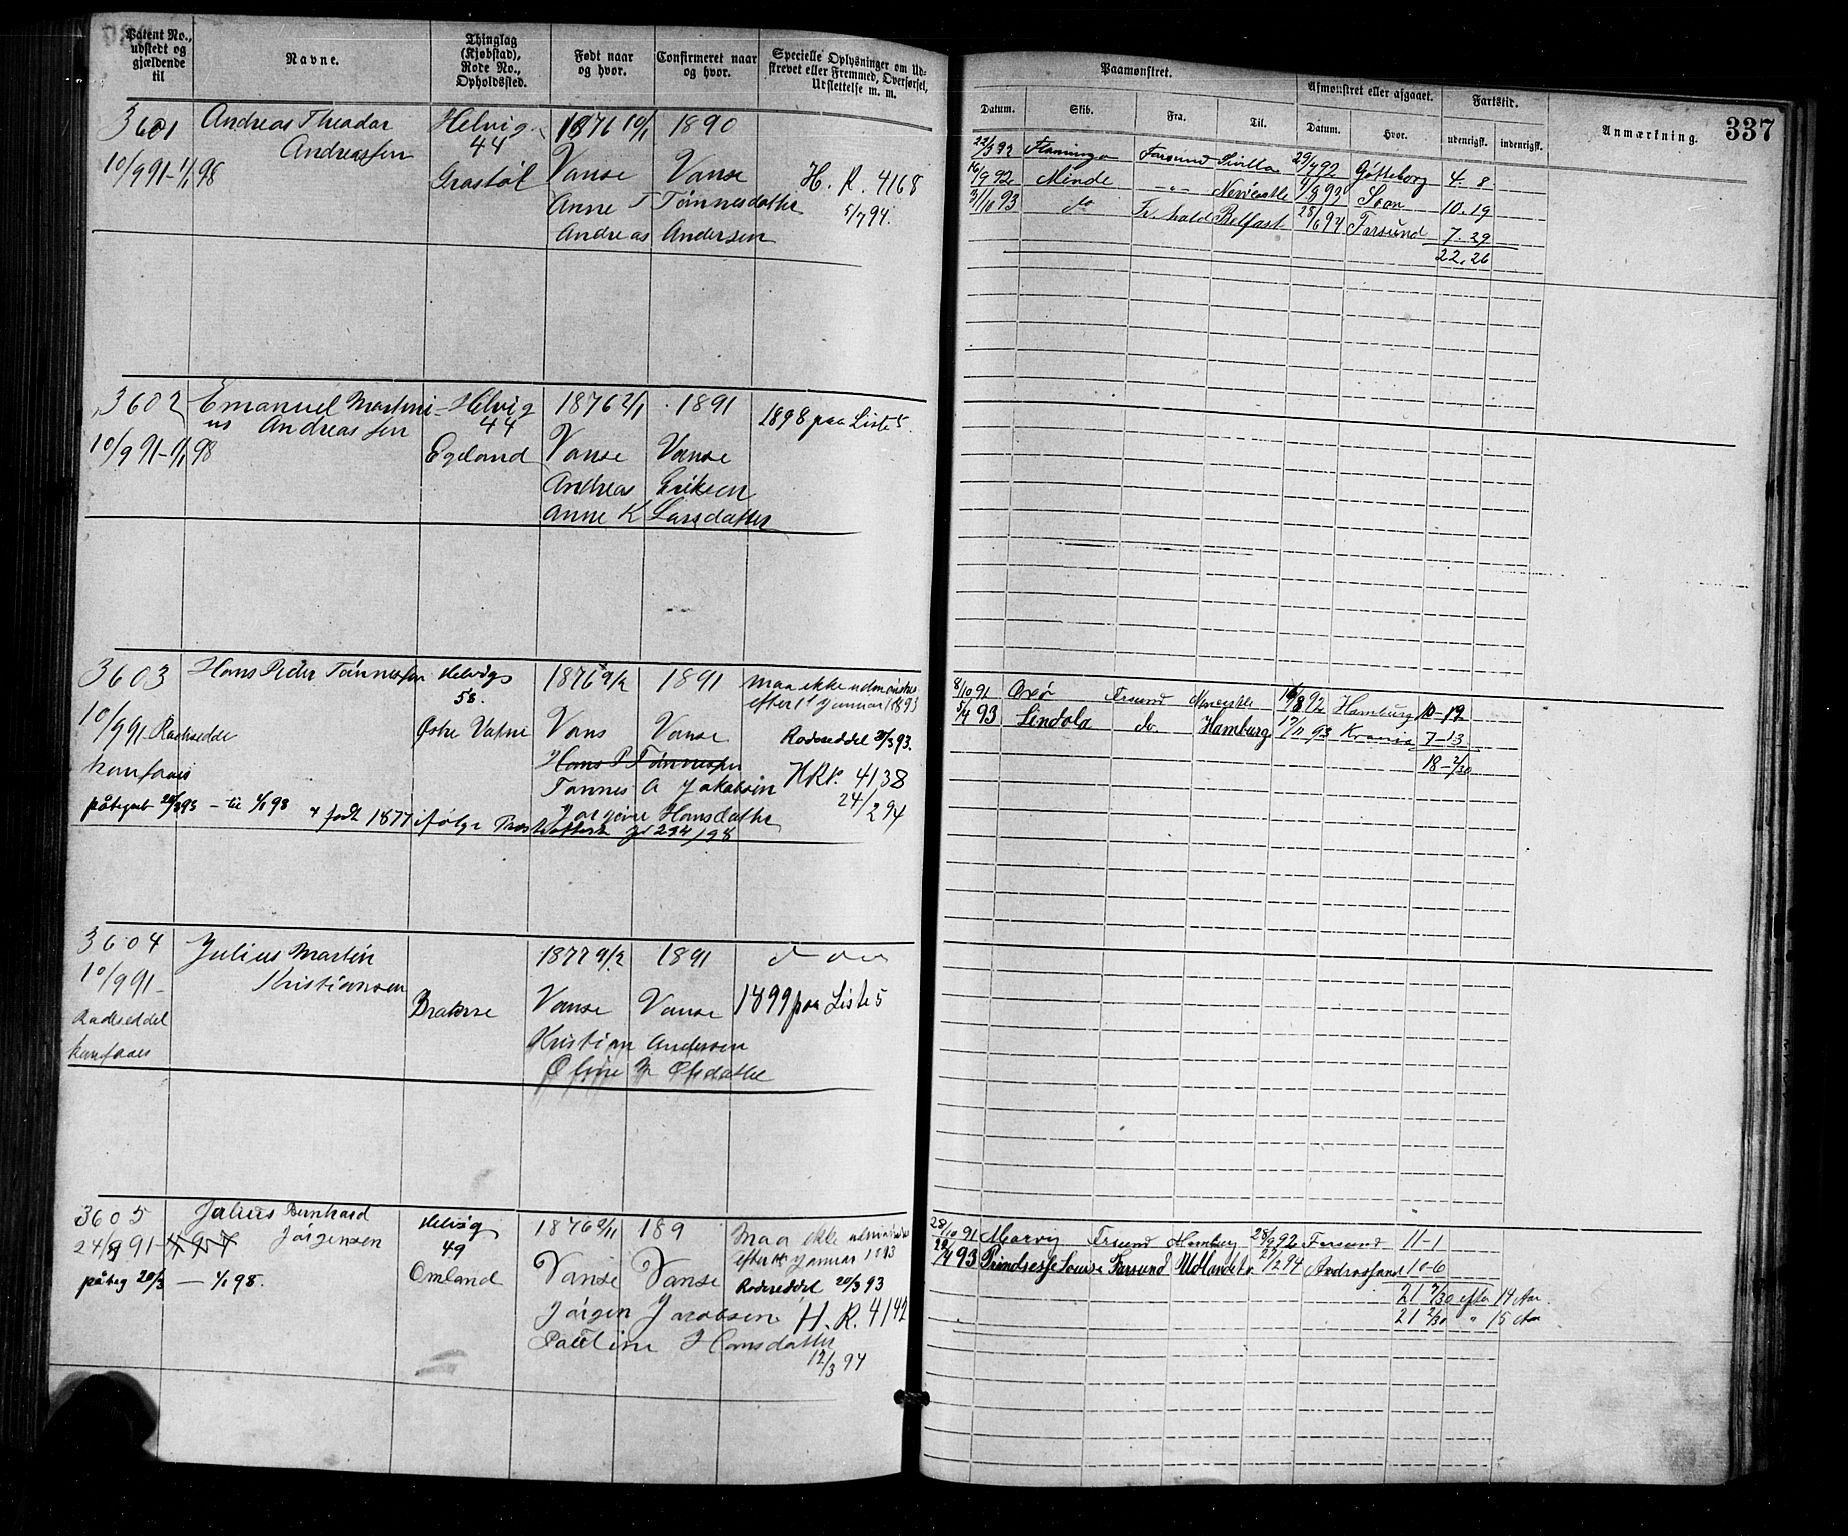 Patent No., udstedt og gjældende til
Navne.
Thinglag (Kjøbstad), Rode No., Opholdssted.
Født naar og hvor.
Confirmeret naar og hvor.
Specielle Oplysninger om Udskrevet eller Fremmed, Overførsel, Udslettelse m. m.
Paamønstret.
Afmønstret eller afgaaet.
Fartstid.
Anmærkning.
337
Datum. Skib. Fra. Til. Datum. Hvor. udenrigsk. indenrigsk.
3601 Andreas Theodor Helvig 1876 10/1 1890
Andreassen 44
10/9 91-1/1 98 Grastøl Vanse Vanse H. R. 4168
Anne T Tønnesdatter 5/7 94.
Andreas Andersen
22/3 92 Flamingo Farsund Sevilla 29/7 92 Gøtteborg 4.8
16/9 92 Minde -"- Newcastle 4/8 93 Soon 10.19
31/10 93 do Fr.hald Belfast 28/6 94 Farsund 7.29
22.26
3602 Emanuel Martini- Helvig 1876 2/1 1891 1898 paa Liste 5.
us Andreassen 44
10/9 91-1/1 98 Egeland Vanse Vanse
Andreas Eriksen
Anne K Larsdatter
3603 Hans Peder Tønnessen Helvigs 1876 9/2 1891 maa ikke udmønstres
58. efter 1st Januar 1893
10/9 91 Rodeseddel Østre Vatne Vans Vanse Rodeseddel 21/3 93.
kun faaes Hans P Tønnessen
Tønnes A Jakobsen HRr. 4138
påtegnet 20/3 93 - til 1/1 98 Jørgine Hansdatter 24/2 94
+ født 1877 ifølge Præsteattest jr 234/98
8/10 91 Oxø Farsund Newcastle 16/8 92 Hamburg 10-19
5/4 93 Lindola do Hamburg 17/11 93 Krania 7-13
18-2/30
3604 Julius Martin 1877 9/2 1891
Kristiansen
10/9 91- Brakne Vanse Vanse 1899 paa Liste 5
Rodeseddel Kristian Andersen
kun faaes Oline M Olsdatter
3605 Julius Bernhard Helvig 1876 2/11 189 Maa ikke udmønstres
24/9 91- Jørgensen 49 efter 1st Januar 1893
påteg 20/3 - 1/1 98. Omland Vanse Vanse Rodeseddel 20/3 93
Jørgen Jacobsen H. R. 4142
Pauline Hansdatter 12/3 94
28/10 91 Marvig Farsund Hamburg 28/9 92 Farsund 11-1
22/4 93 Prindsesse Louise Farsund Udlandet 27/2 94 Androssand 10-6
21 7/30 efter 14 Aar
21 2/30 " 15 Aar